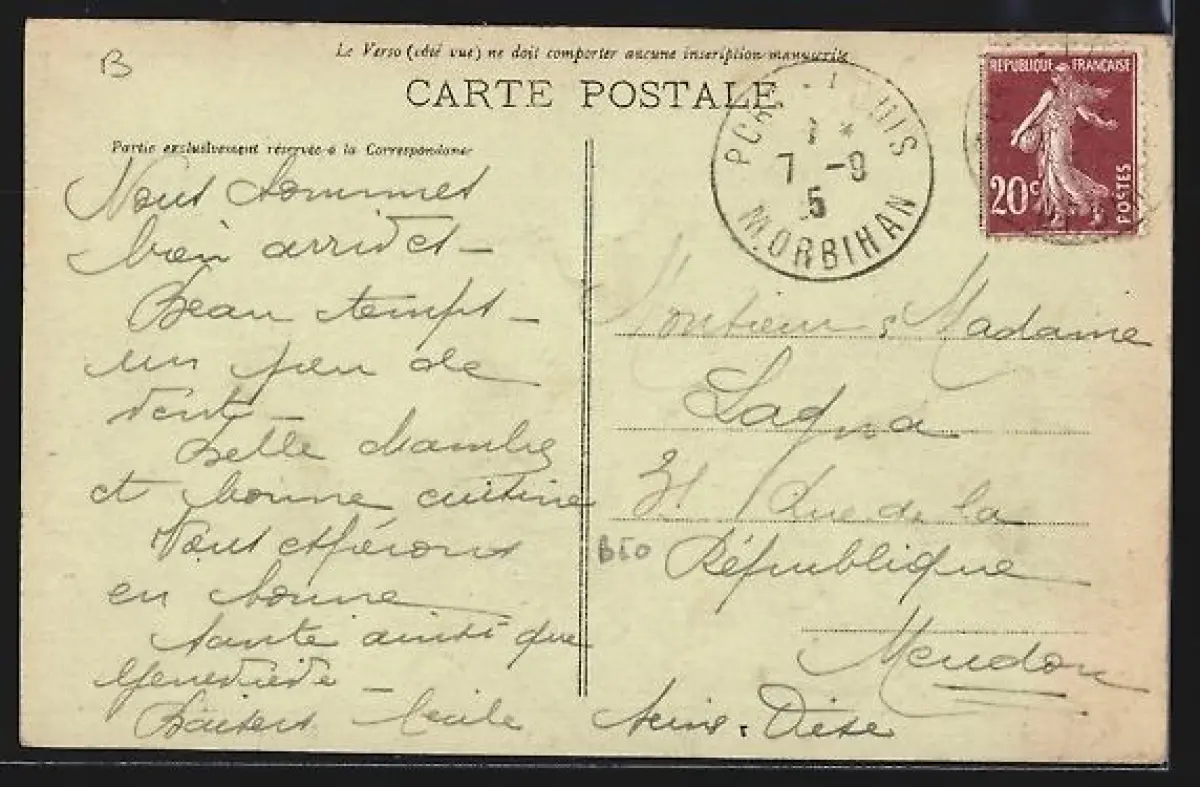 B
Le Verso (côté vue) ne doit comporter aucune inscription manuscrite
CARTE POSTALE
Partie exclusivement réservée à la Correspondance
Nous sommes
bien arrivés —
Beau temps —
un peu de
vent —
Belle chambre
et bonne cuisine
Vous espérons
en bonne
santé ainsi que
Geneviève —
Baisers Cécile
PORT-LOUIS
7 -9
5
MORBIHAN
REPUBLIQUE FRANÇAISE
20c
POSTES
Monsieur & Madame
31 Rue de la
République
BEO
Meudon
Seine. Oise